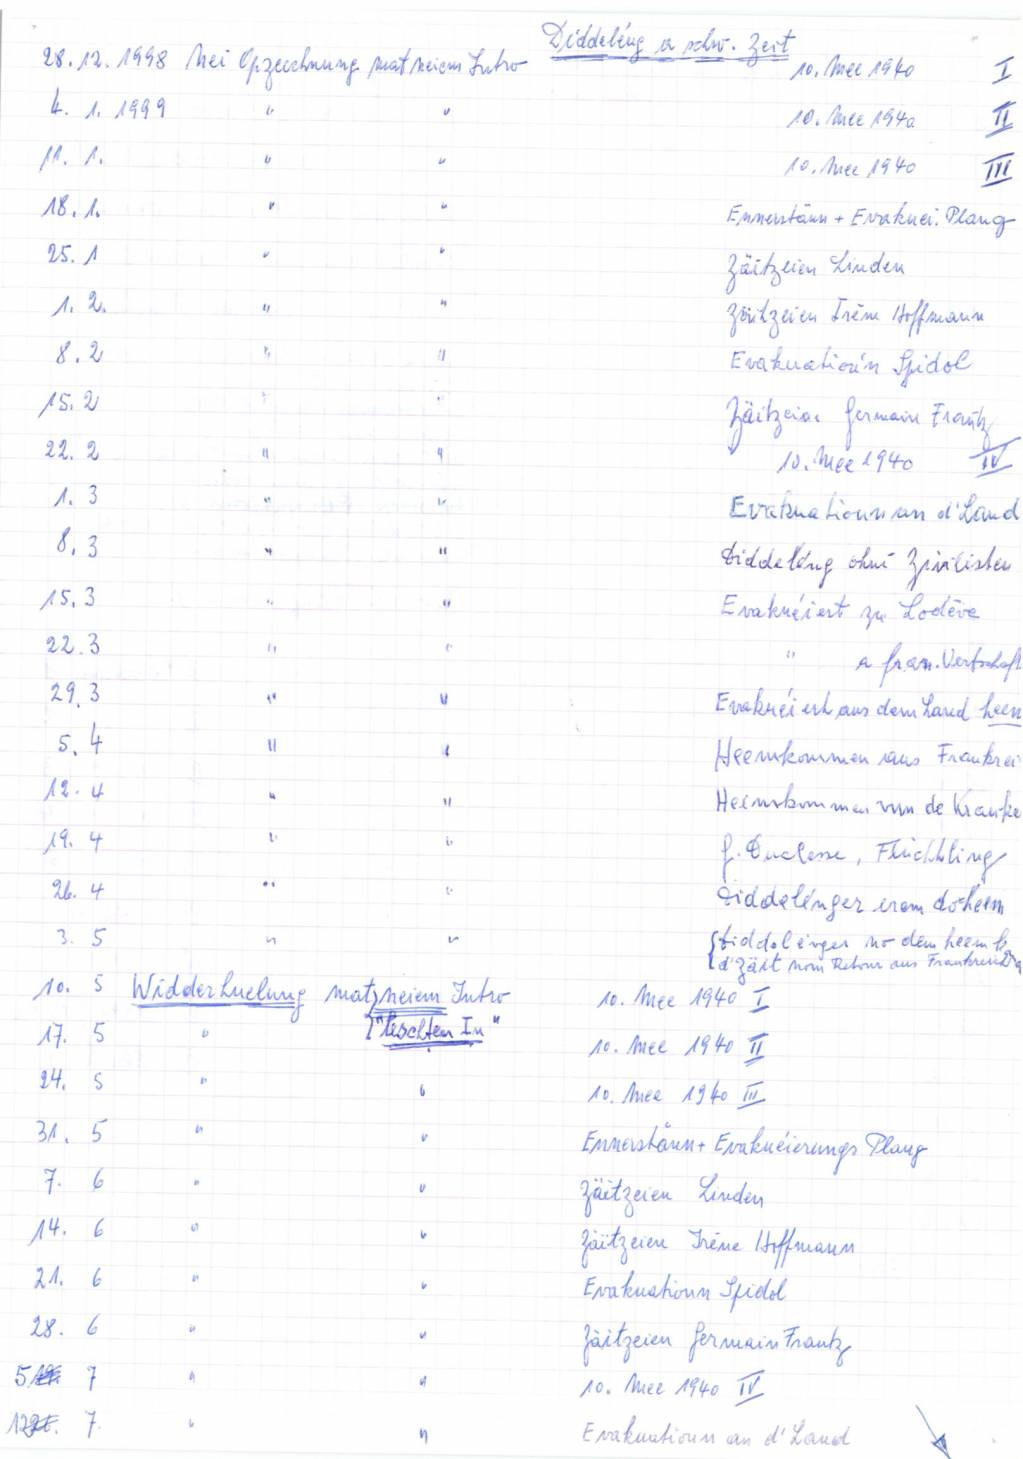 Diddeléng a schw. Zeit
28.12.1998 Nei Opzeechnung mat neiem Intro 10. Mee 1940 I
4. 1. 1999 " " 10. Mee 1940 II
11. 1. " " 10. Mee 1940 III
18. 1. " " Ennerstänn + Evakuéi. Plang
25. 1 " " Zäitzeien Linden
1. 2. " " Zäitzeien Irène Hoffmann
8. 2 " " Evakuatioún Spidol
15. 2 " " Zäitzeien Germain Frantz
22. 2 " " 10. Mee 1940 IV
1. 3 " " Evakuatioun an d'Land
8. 3 " " Diddeléng ohni Zivilisten
15. 3 " " Evakuéiert zu Lodève
22. 3 " " " a fran. Wertschaft
29. 3 " " Evakuéiert aus dem Land heem
5. 4 " " Heemkommen aus Frankrei
12. 4 " " Heemkommen vun de Kranke
19. 4 " " Flüchtling
26. 4 " " Diddelénger erem doheem
3. 5 " " { Diddelénger no dem heem k
d'Zäit nom Retour aus Frankreich
10. 5 Widderhuelung mat } neiem Intro 10. Mee 1940 I
17. 5 " } "leschten In" 10. Mee 1940 II
24. 5 " " 10. Mee 1940 III
31. 5 " " Ennerstänn + Evakuéierungs Plang
7. 6 " " Zäitzeien Linden
14. 6 " " Zäitzeien Irène Hoffmann
21. 6 " " Evakuatioun Spidol
28. 6 " " Zäitzeien Germain Frantz
5. 7 " " 10. Mee 1940 IV
12. 7. " " Evakuatioun an d'Land